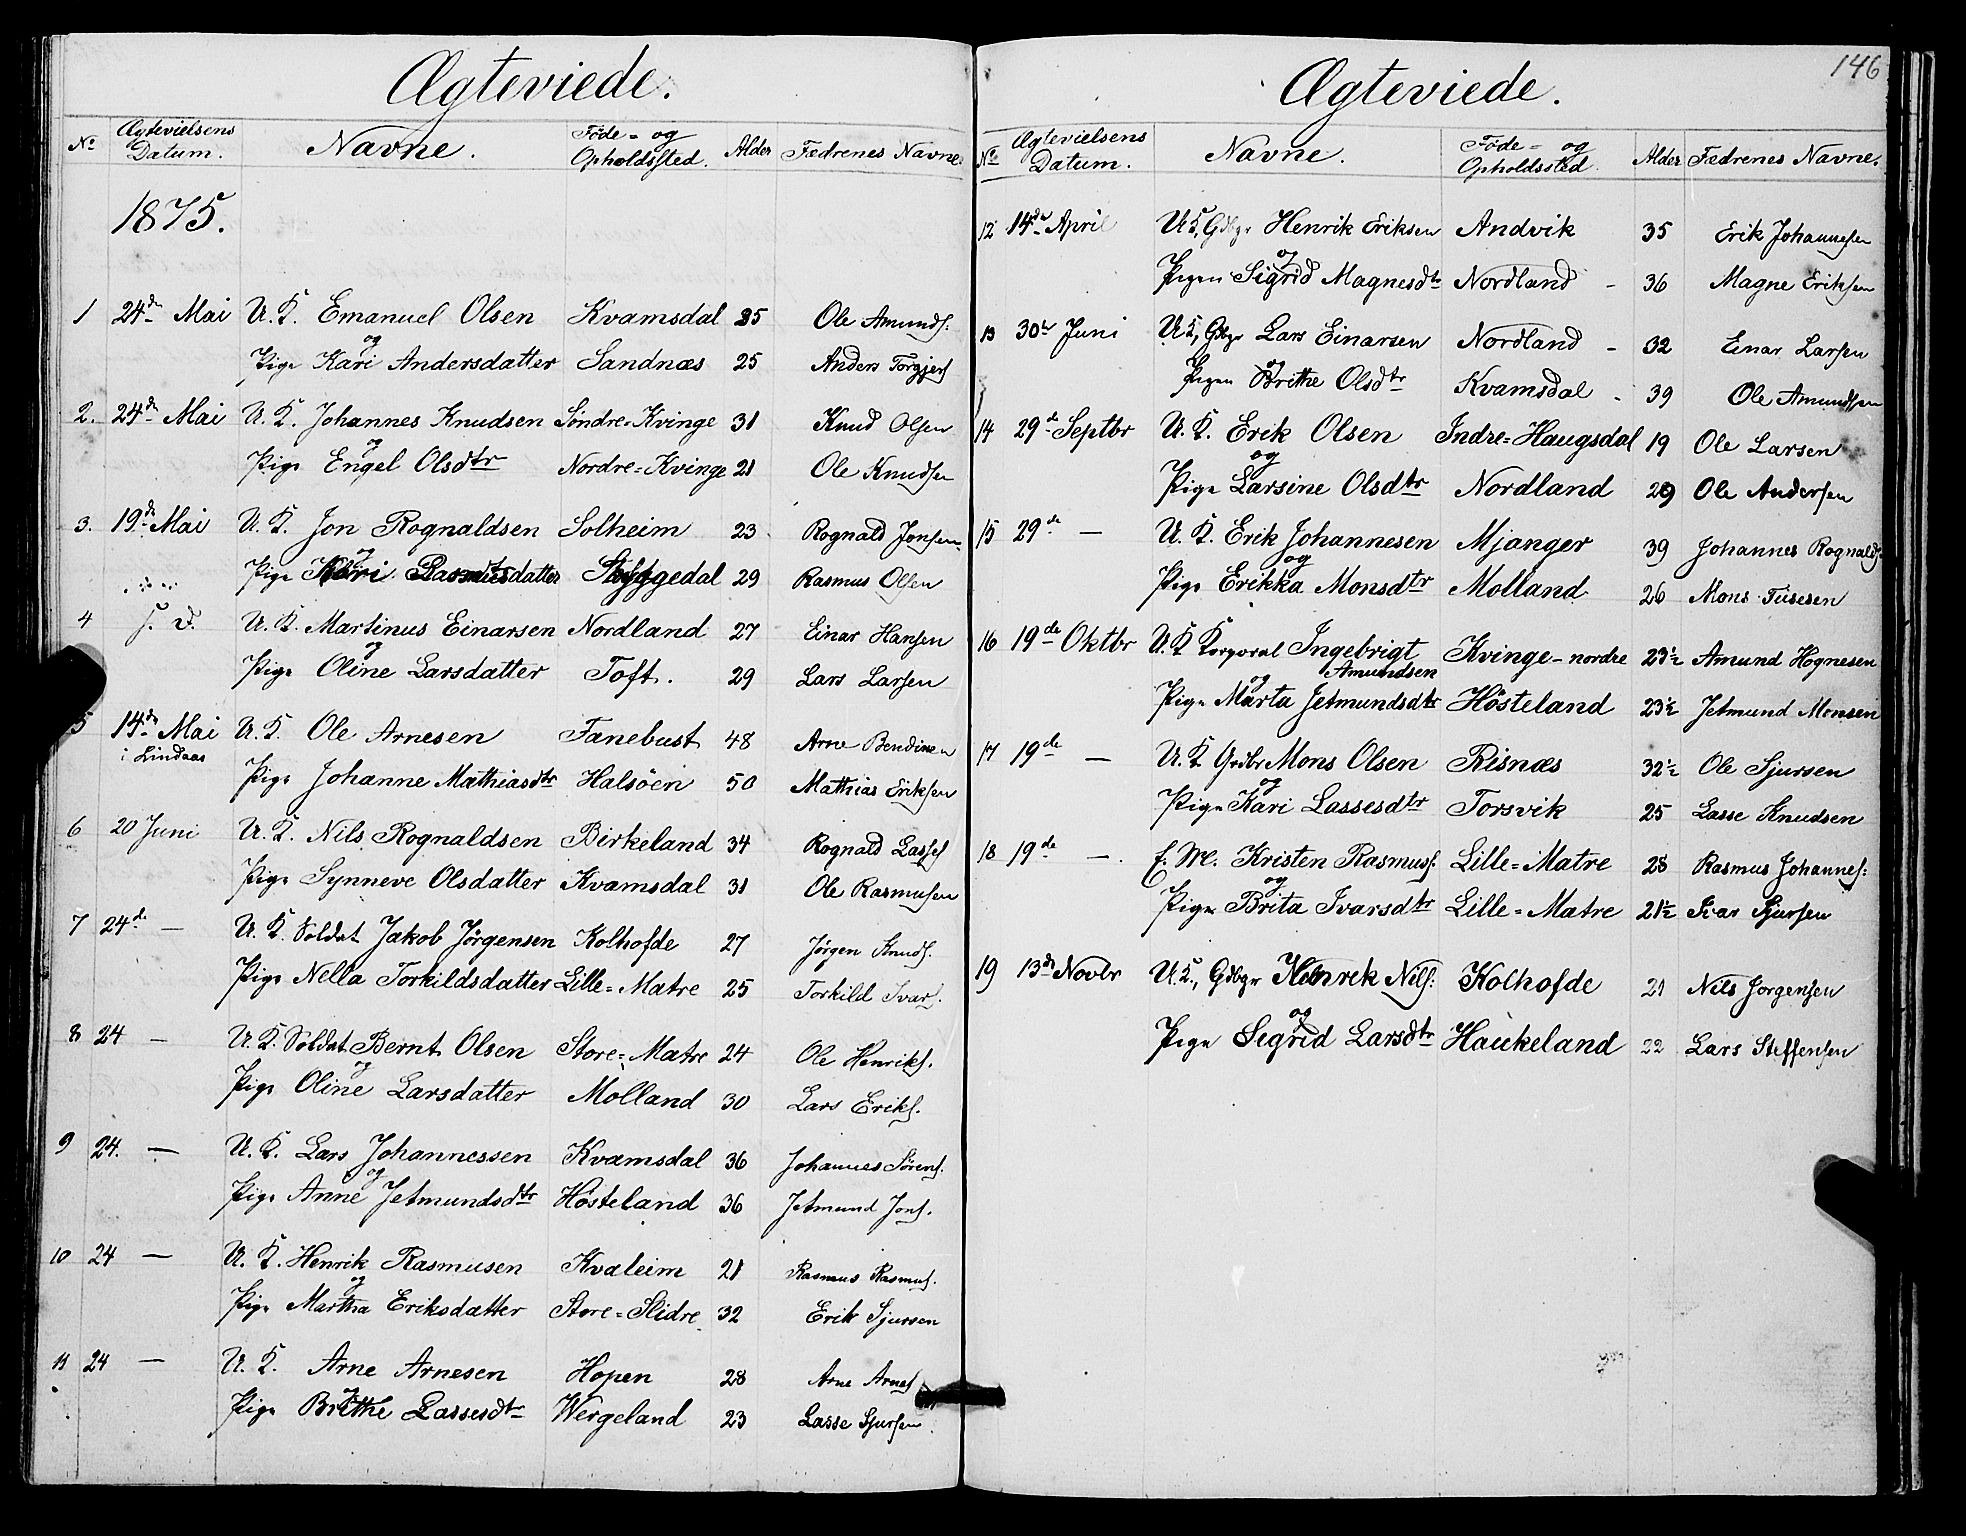 Ægteviede.
No Ægtevielsens Datum. Navne. Føde- og Opholdssted. Alder Fædrenes Navne.
1875.
1 24de Mai U. K. Emanuel Olsen Kvamsdal 25 Ole Amunds.
og
Pige Kari Andersdatter Sandnæs 25 Anders Torgjers
2. 24de Mai U. K. Johannes Knudsen Søndre-Kvinge 31 Knud Olsen
og
Pige Engel Olsdtr Nordre-Kvinge 21 Ole Knudsen
3. 19de Mai U. K. Jon Rognaldsen Solheim 23 Rognald Jonsen
og
Pige Kari Rasmusdatter Skyggedal 29 Rasmus Olsen
4 S. D. U. K. Martinus Einarsen Nordland 27 Einar Hansen
og
Pige Oline Larsdatter Toft. 29 Lars Larsen
5 14de Mai U. K. Ole Arnesen Fanebust 48 Arne Bendixen
i Lindaas
Pige Johanne Mathiasdtr Halsöen 50 Mathias Eriksen
6 20 Juni U. K. Nils Rognaldsen Birkeland 34 Rognald Lasses
Pige Synneve Olsdatter Kvamsdal 31 Ole Rasmusen
7 24de — U. K. Soldat Jakob Jørgensen Kolhofde 27 Jørgen Knuds.
Pige Nella Torkildsdatter Lille-Matre 25 Torkild Ivars.
8 24 — U. K. Soldat Bernt Olsen Store-Matre 24 Ole Henriks.
og
Pige Oline Larsdatter Molland 30 Lars Eriks.
9 24. — U. K. Lars Johannessen Kvamsdal 36 Johannes Sörens.
og
Pige Anne Jetmundsdtr Hösteland 36 Jetmund Jons.
10 24 — U. K. Henrik Rasmusen Kvaleim 21 Rasmus Rasmus.
og
Pige Martha Eriksdatter Store-Slidre 32 Erik Sjursen
11 24 — U. K. Arne Arnesen Hopen 28 Arne Arnes
Pige Brithe Lassesdtr Wergeland 23 Lasse Sjursen
146
Ægteviede.
No Ægtevielsens Datum. Navne. Føde- og Opholdssted. Alder Fædrenes Navne.
12 14de April U.K. Gdbgr Henrik Eriksen Andvik 35 Erik Johannesen
og
Pigen Sigrid Magnesdtr Nordland - 36 Magne Eriksen
13 30te Juni U.K. Gdbgr Lars Einarsen Nordland - 32 Einar Larsen
og
Pigen Brithe Olsdtr Kvamsdal - 39 Ole Amundsen
14 29de Septbr U. K. Erik Olsen Indre-Haugsdal 19 Ole Larsen
og
Pige Larsine Olsdtr Nordland 29 Ole Andersen
15 29de — U. K. Erik Johannesen Mjanger 39 Johannes Rognalds.
og
Pige Erikka Monsdtr Molland 26 Mons Tusesen
16 19de Oktbr U. K. Korporal Ingebrigt Kvinge-nordre 23½ Amund Hognesen
Amundsen
og
Pige Marta Jetmundsdtr Hösteland 23½ Jetmund Monsen
17 19de — U. K. Grdbr Mons Olsen Risnæs 32½ Ole Sjursen
og
Pige Kari Lassesdtr Torsvik 25 Lasse Knudsen
18 19de —. E. M. Kristen Rasmuss. Lille-Matre 28 Rasmus Johannes.
og
Pige Brita Ivarsdtr Lille-Matre 21½ Ivar Sjursen
19 13de Novbr U. K., Gdbgr Henrek Nils. Kolhofde 21 Nils Jorgensen
og
Pige Segrid Larsdtr Haukeland 22 Lars Steffensen